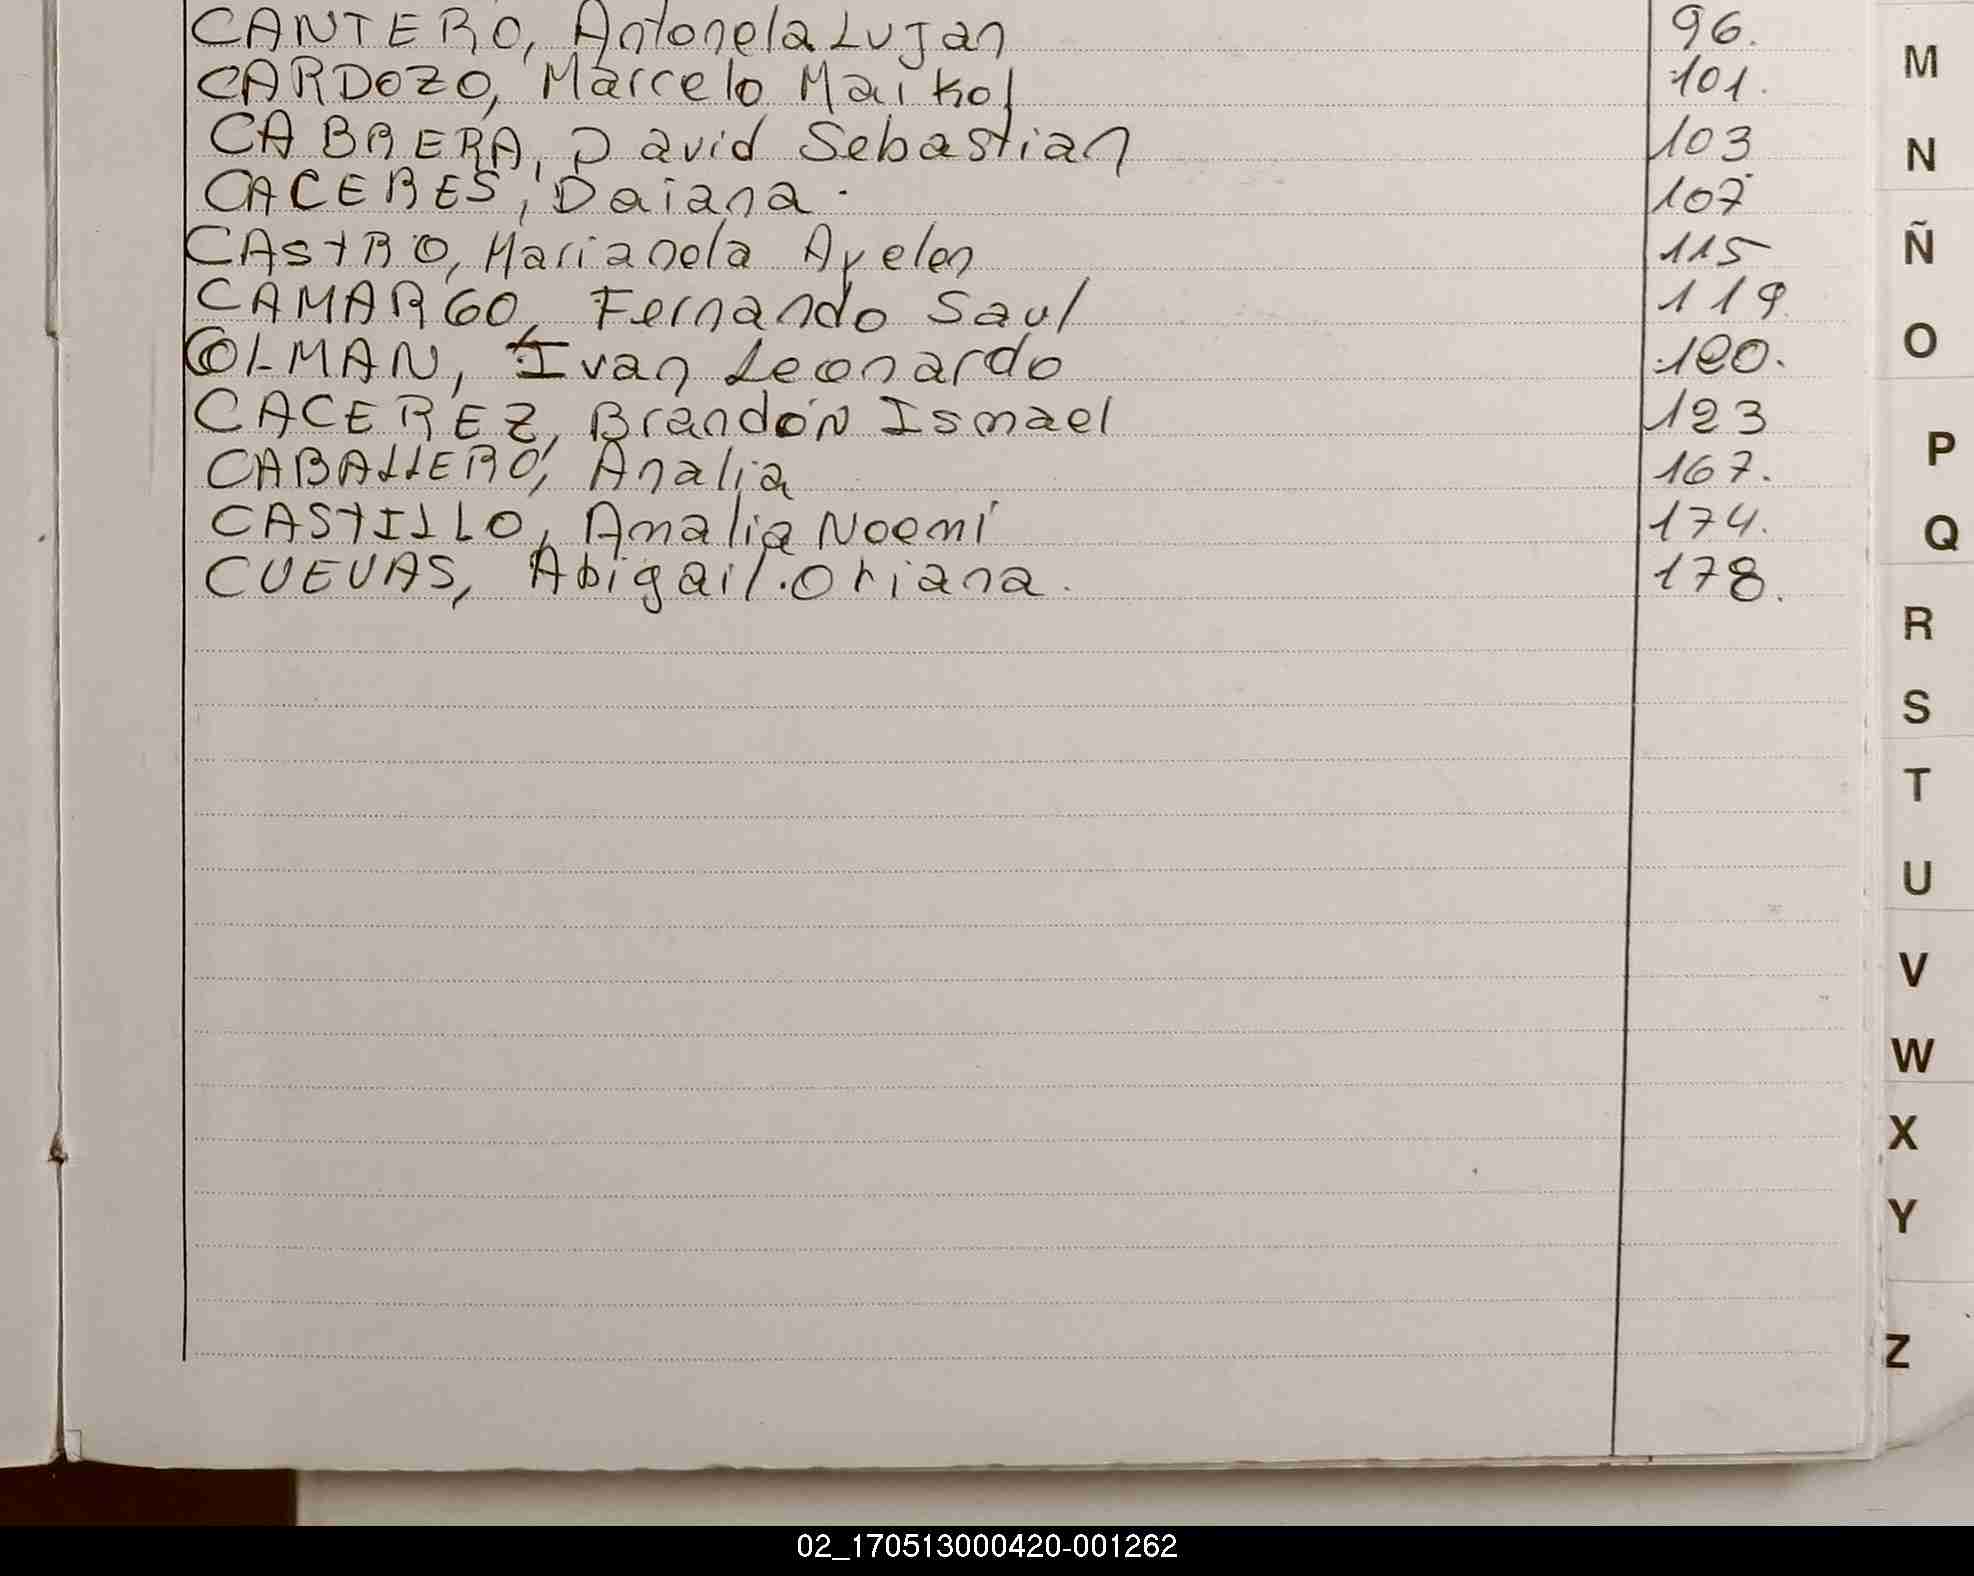 CANTERO, Antonela Lujan 96.
CARDOZO, Marcelo Maikol 101.
CABRERA, David Sebastian 103
CACERES, Daiana. 107
CASTRO, Marianela Ayelen 115
CAMARGO, Fernando Saul 119.
COLMAN, Ivan Leonardo 120.
CACEREZ, Brandon Ismael 123
CABALLERO, Analia 167.
CASTILLO, Amalia Noemí 174.
CUEVAS, Abigail.Oriana. 178.
M
N
Ñ
O
P
Q
R
S
T
U
V
W
X
Y
Z
02_170513000420-001262